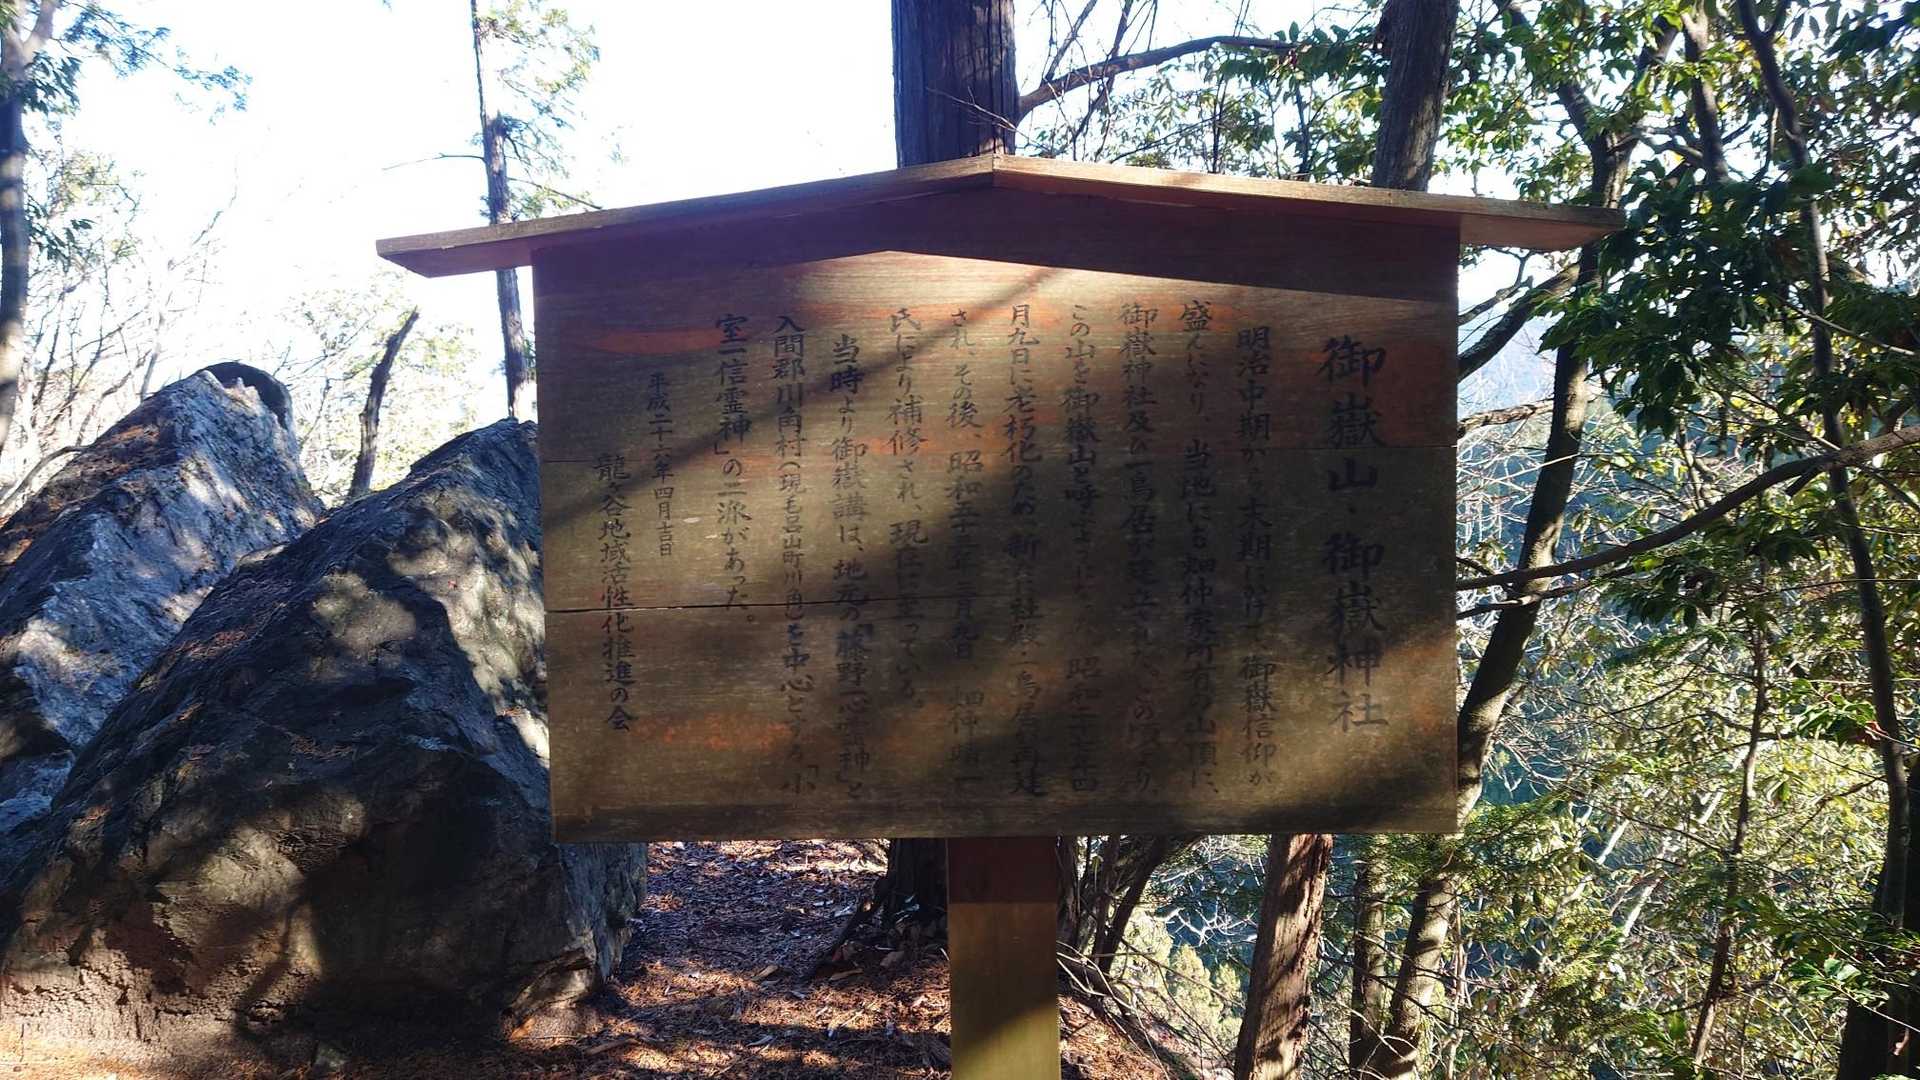 御嶽山・御嶽神社
明治中期から末期にかけて、御嶽信仰が
盛んになり、当地にも畑仲家所有の山頂に、
御嶽神社及び一鳥居が建立された。この頃より、
この山を御嶽山と呼ぶようになった。昭和二十七年四
月九日に老朽化のため、新に社殿・一鳥居再建
され、その後、昭和五十三年三月九日、畑仲晴一
氏により補修され、現在に至っている。
当時より御嶽講は、地元の「藤野一心霊神」と
入間郡川角村(現毛呂山町川角)を中心とする「小
室一信霊神」の二派があった。
平成二十六年四月吉日
龍ヶ谷地域活性化推進の会